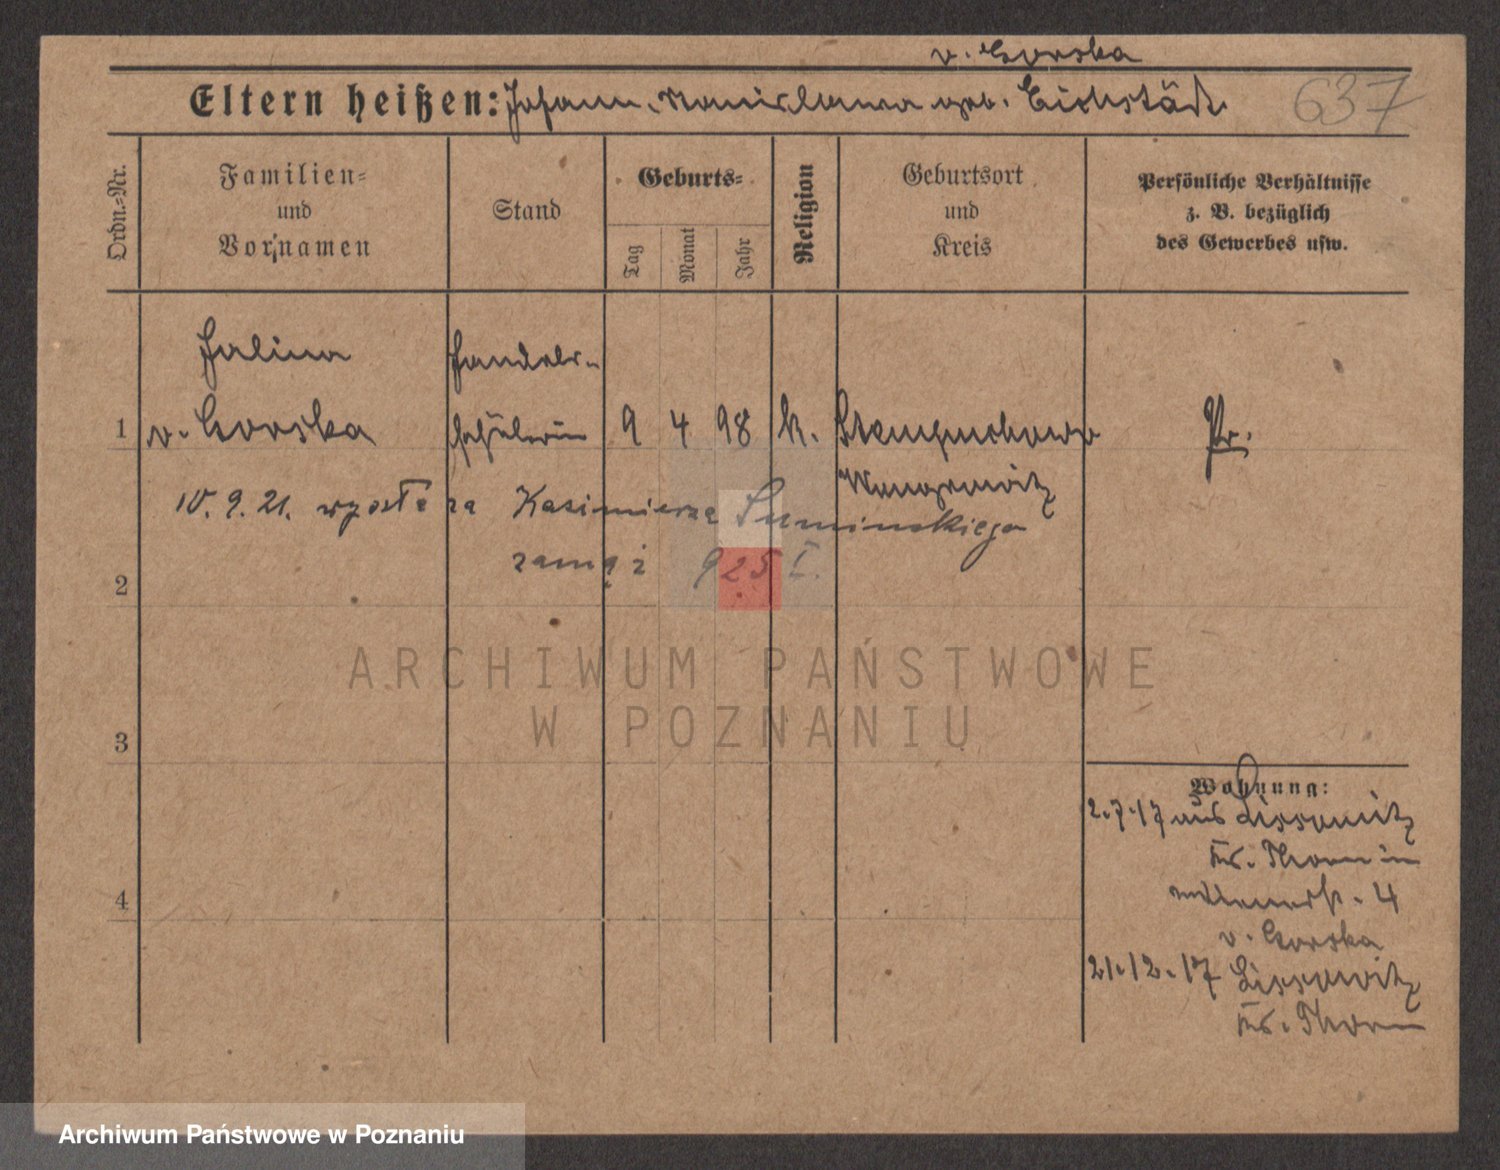 v. Gorska
Eltern heißen: Johann, Stanislawa geb. Eichstädt
637
Ordn.-Nr.
Familien-
und
Vornamen
Stand
Geburts-
Tag
Monat
Jahr
Religion
Geburtsort
und
Kreis
Persönliche Verhältnisse
z. B. bezüglich
des Gewerbes usw.
Halina
Handels-
1 v. Gorska schülerin 9 4 98 k. Stempuchowo Pr.
Wongrowitz
10. 9. 21. wyszła za Kazimierza Suminskiego
zamąż 925 I.
2
ARCHIWUM PAŃSTWOWE
W POZNANIU
3
Wohnung:
2.7.17 aus Lissomitz
Kr. Thorn in
4
v. Gorska
21.12.17 Lissomitz
Kr. Thorn
4
Archiwum Państwowe w Poznaniu